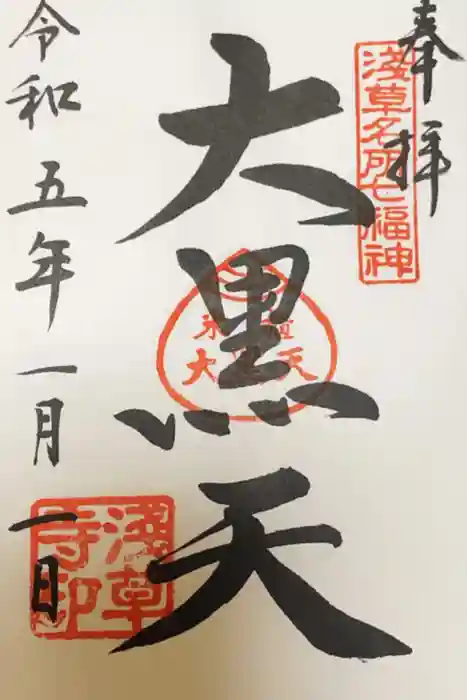 奉拝
淺草名所七福神
大黒天
米粒
大黒天
令和五年一月一日
淺草寺印